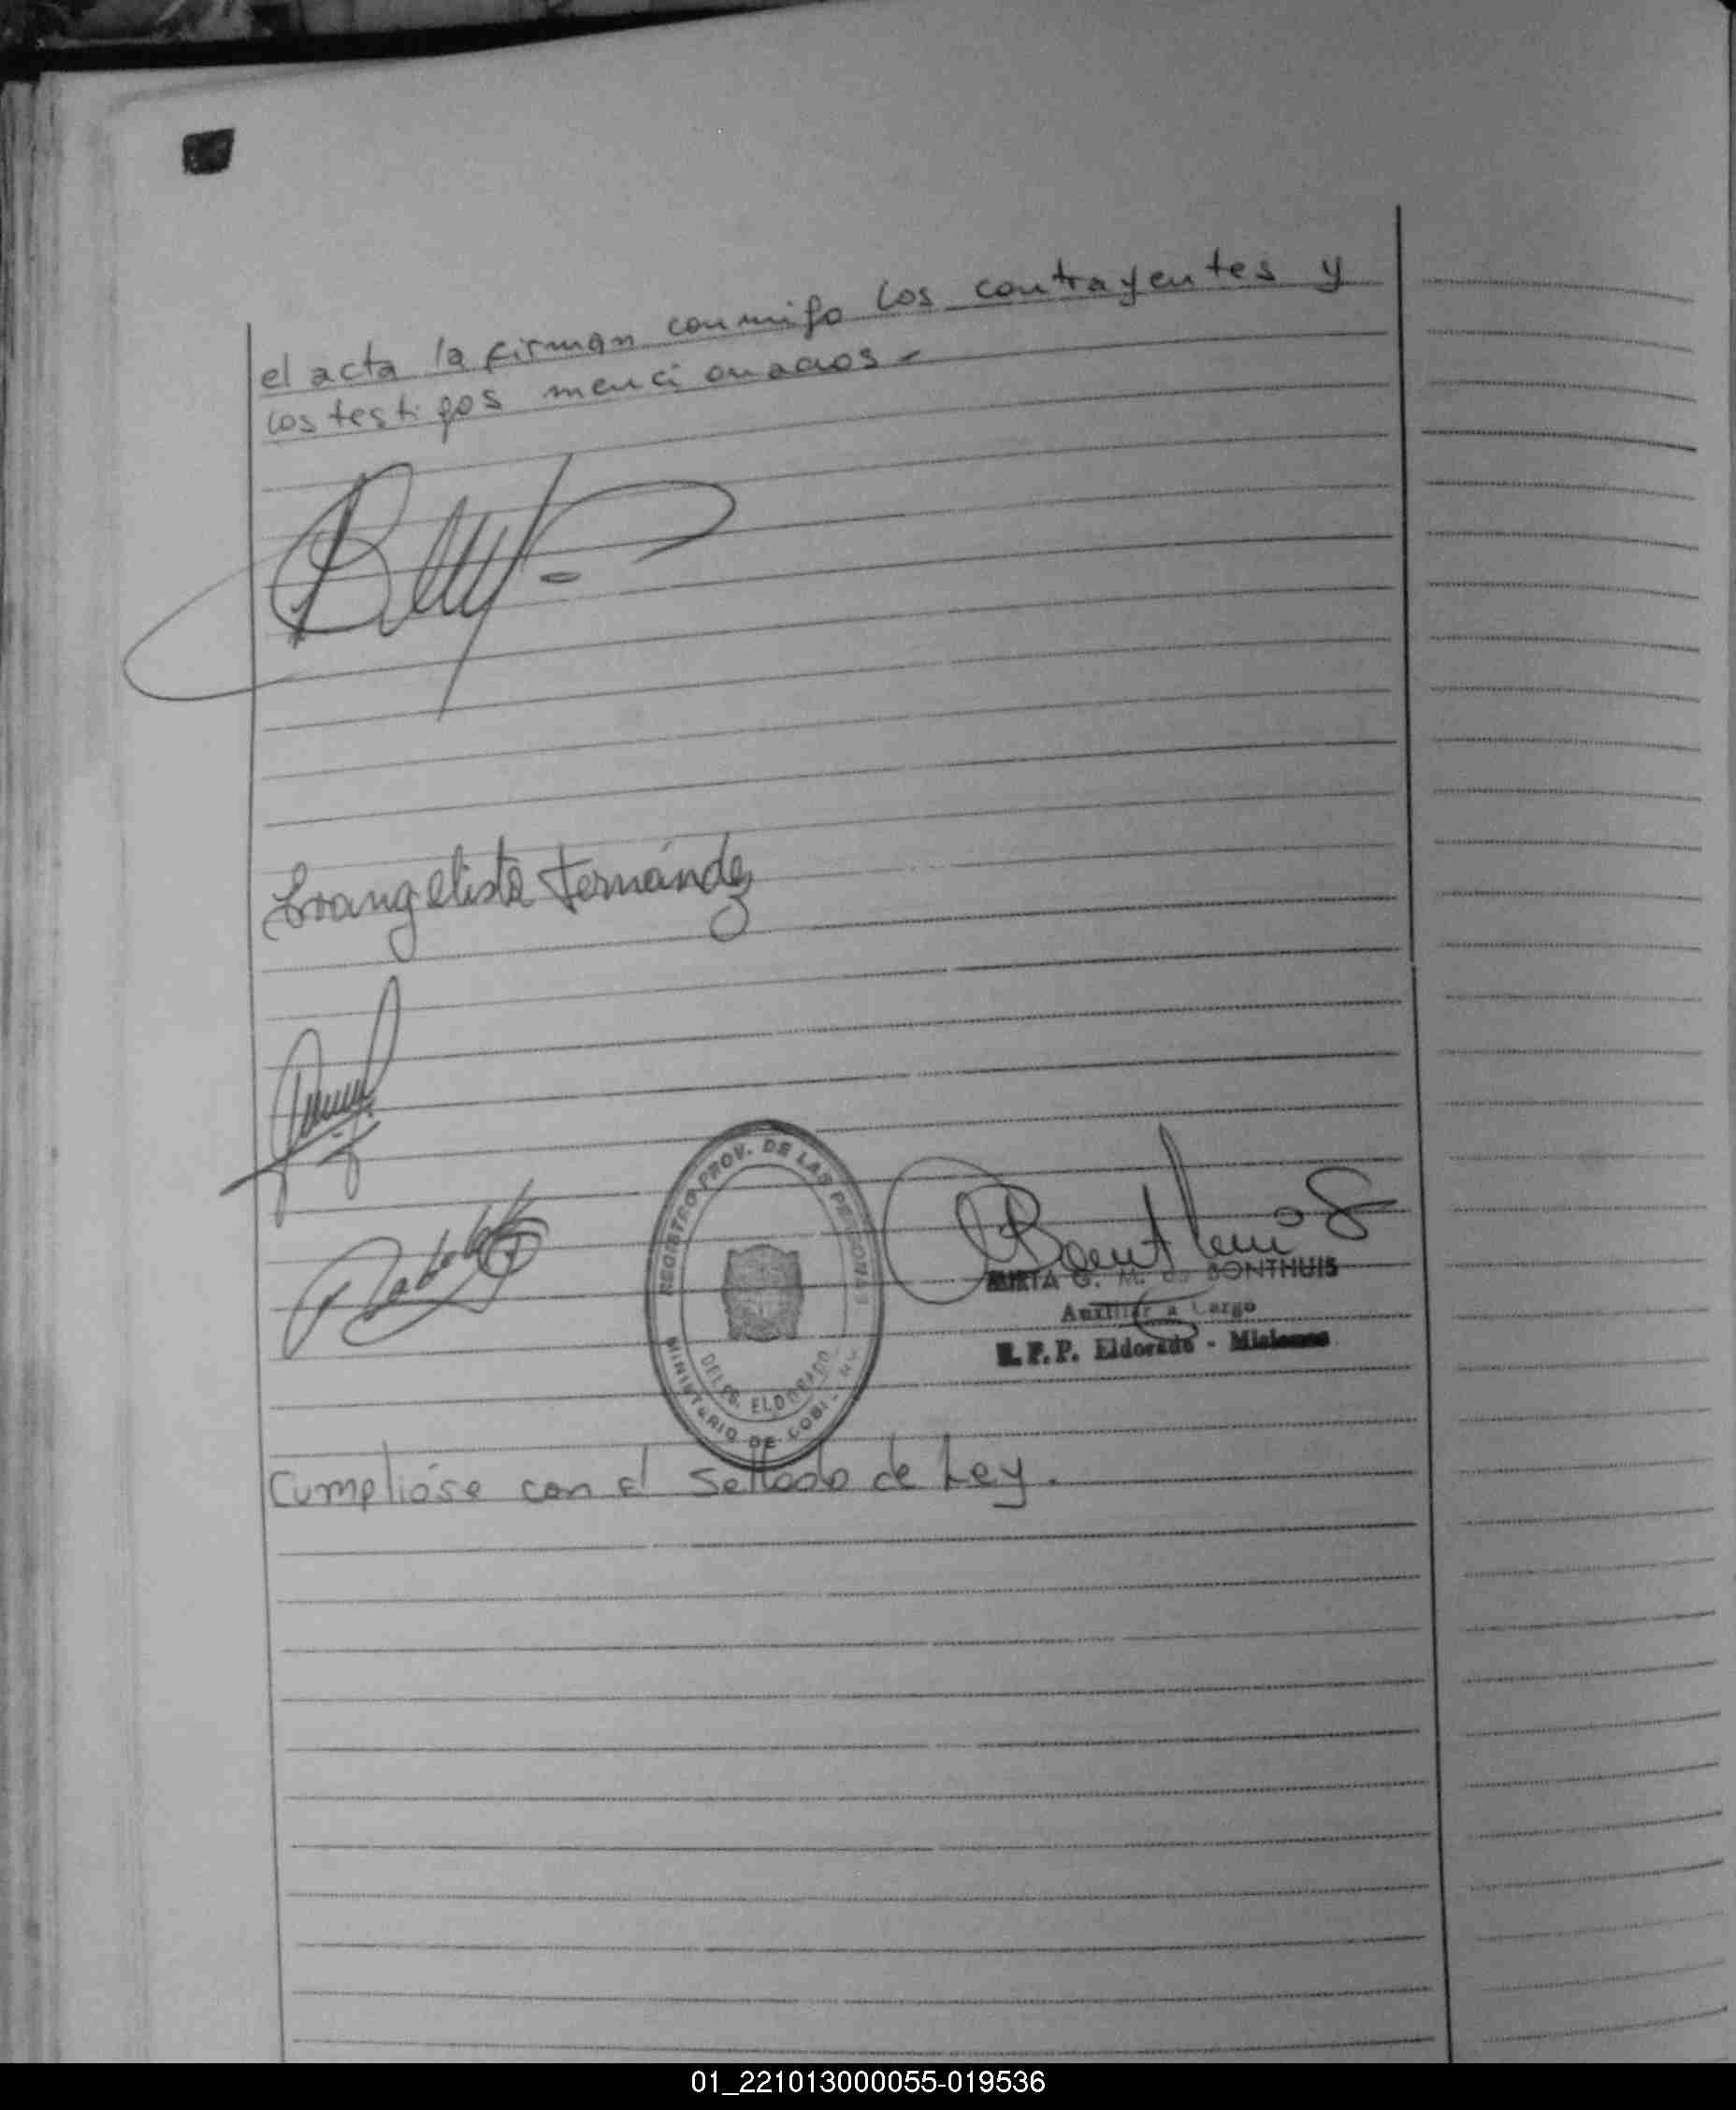 el acta la firman conmigo los contrayentes y
los testigos mencionados -
Evangelista Fernández
REGISTRO PROV. DE LAS PERSONAS
DELEG. ELDORADO
MINISTERIO DE GOBI
MIRTA G. M. de BONTHUIS
Auxiliar a Cargo
R. P. P. Eldorado - Misiones
Cumplióse con el Sellado de Ley.
01_221013000055-019536